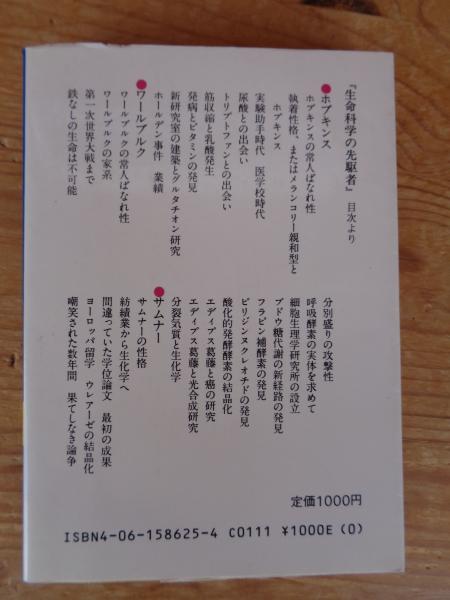 『生命科学の先駆者』 目次より
●ホプキンス
ホプキンスの常人ばなれ性
執着性格、またはメランコリー親和型と
ホプキンス
実験助手時代 医学校時代
尿酸との出会い
トリプトファンとの出会い
筋収縮と乳酸発生
発病とビタミンの発見
新研究室の建築とグルタチオン研究
ホールデン事件 業績
●ワールブルク
ワールブルクの常人ばなれ性
ワールブルクの家系
第一次世界大戦まで
鉄なしの生命は不可能
分別盛りの攻撃性
呼吸酵素の実体を求めて
細胞生理学研究所の設立
ブドウ糖代謝の新経路の発見
フラビン補酵素の発見
ピリジンヌクレオチドの発見
酸化的発酵酵素の結晶化
エディプス葛藤と癌の研究
エディプス葛藤と光合成研究
分裂気質と生化学
●サムナー
サムナーの性格
紡績業から生化学へ
間違っていた学位論文 最初の成果
ヨーロッパ留学 ウレアーゼの結晶化
嘲笑された数年間 果てしなき論争
定価1000円
ISBN4-06-158625-4 C0111 ¥1000E (0)